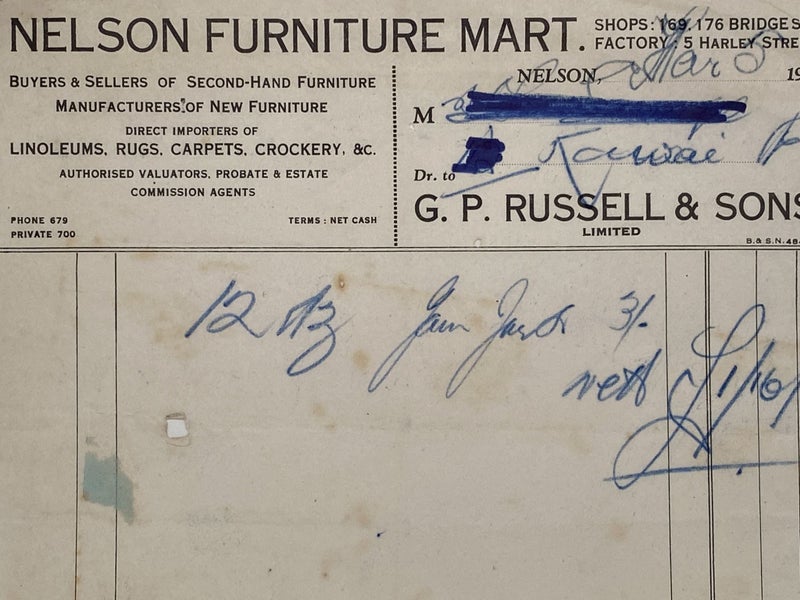 NELSON FURNITURE MART.
SHOPS: 169, 176 BRIDGE S
FACTORY: 5 HARLEY STRE
BUYERS & SELLERS OF SECOND-HAND FURNITURE
MANUFACTURERS OF NEW FURNITURE
DIRECT IMPORTERS OF
LINOLEUMS, RUGS, CARPETS, CROCKERY, &C.
AUTHORISED VALUATORS, PROBATE & ESTATE
COMMISSION AGENTS
PHONE 679
PRIVATE 700
TERMS: NET CASH
NELSON, Mar 5 19
M
Kawai
Dr. to
G. P. RUSSELL & SONS
LIMITED
B. & S. N. 48
12 Dz Jam Jars 3/-
nett £1/16/